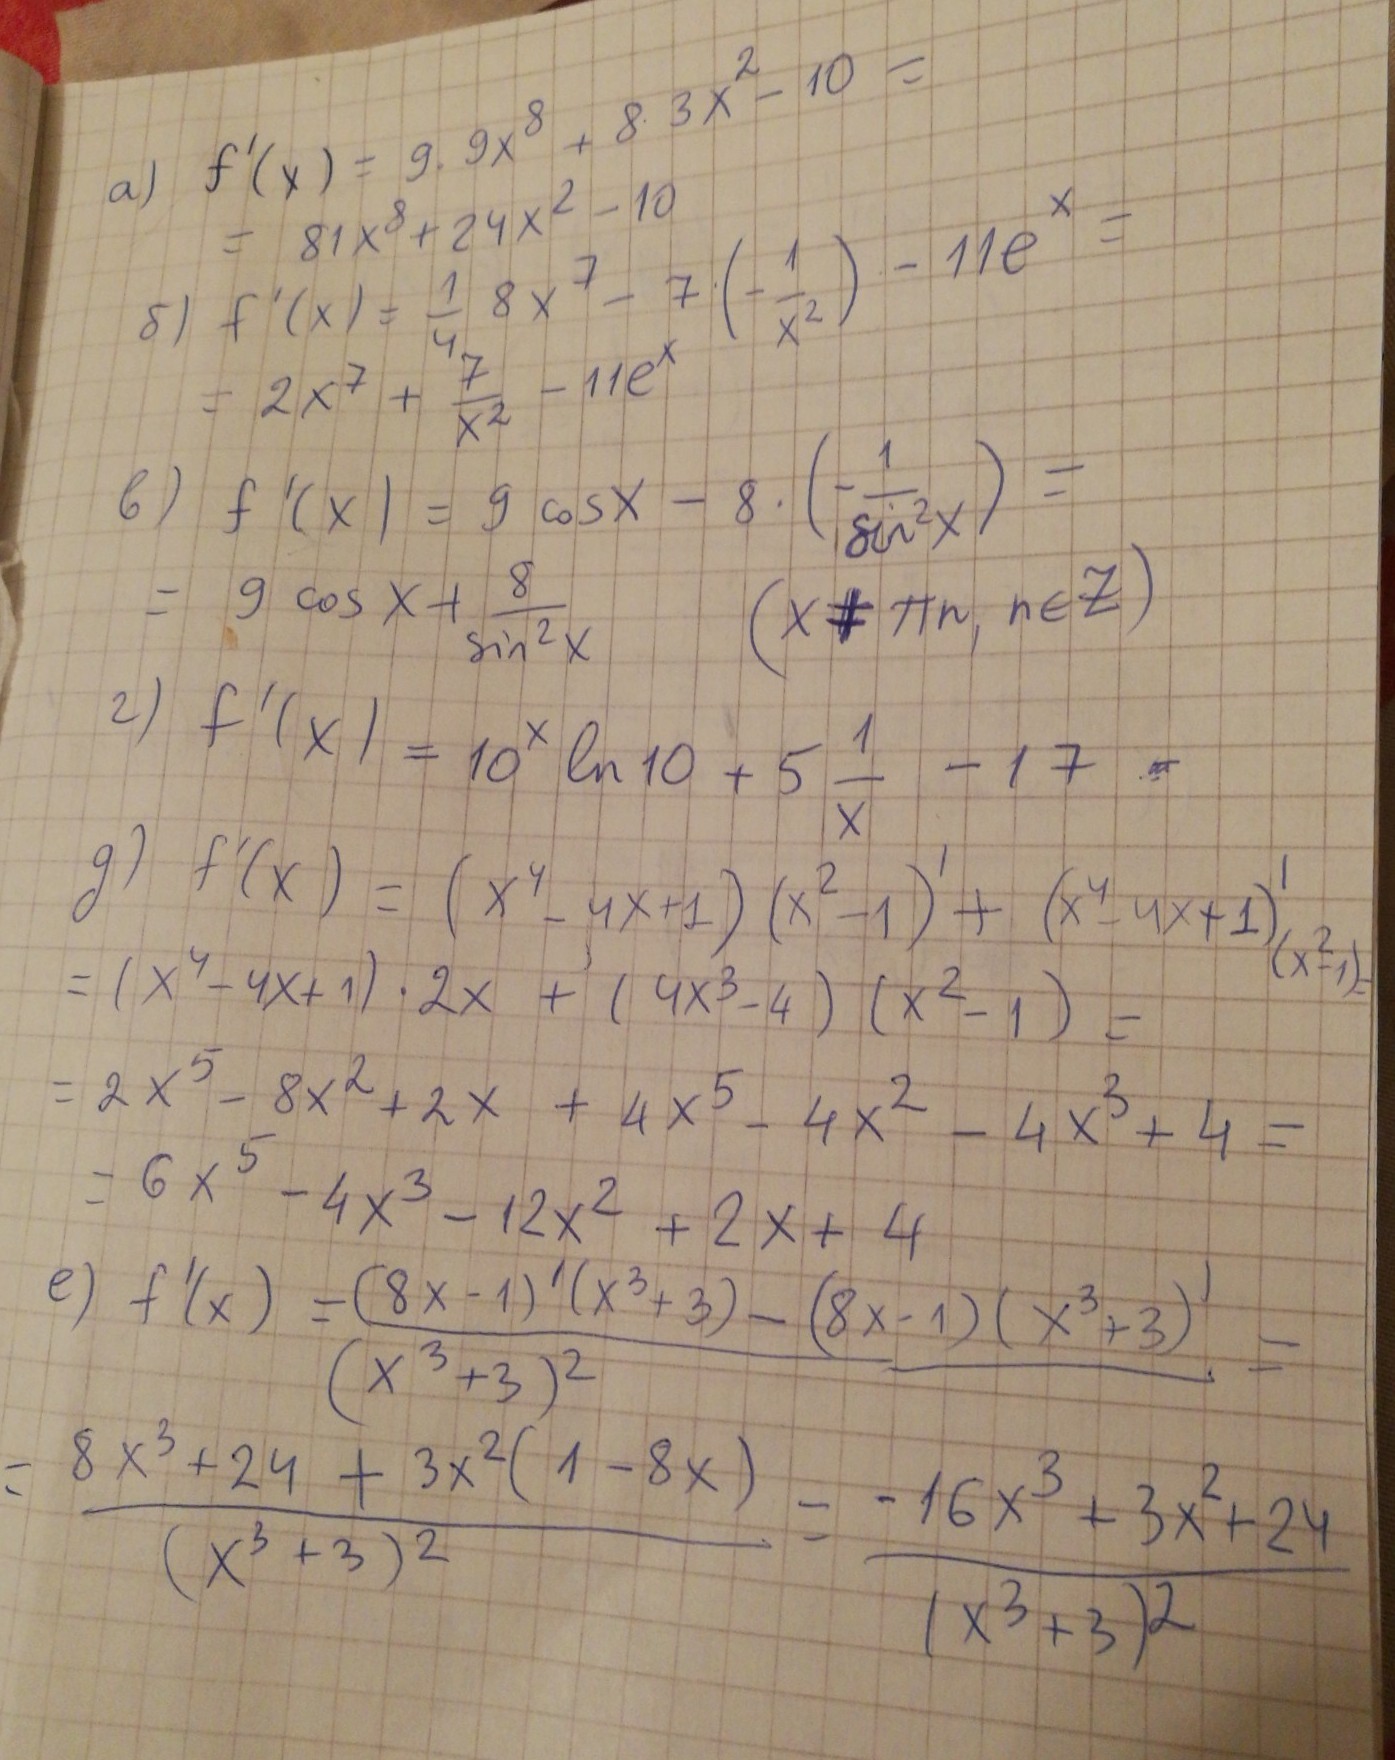 а) f'(x) = 9·9x⁸ + 8·3x² - 10 =
= 81x⁸ + 24x² - 10
б) f'(x) = 1/4 8x⁷ - 7·(-1/x²) - 11eˣ =
= 2x⁷ + 7/x² - 11eˣ
в) f'(x) = 9 cosx - 8·(-1/sin²x) =
= 9 cos x + 8/sin²x (x ≠ πn, n∈Z)
г) f'(x) = 10ˣ ln10 + 5 1/x - 17
д) f'(x) = (x⁴ - 4x + 1)(x² - 1)' + (x⁴ - 4x + 1)'(x² - 1) =
= (x⁴ - 4x + 1)·2x + (4x³ - 4)(x² - 1) =
= 2x⁵ - 8x² + 2x + 4x⁵ - 4x² - 4x³ + 4 =
= 6x⁵ - 4x³ - 12x² + 2x + 4
е) f'(x) = (8x - 1)'(x³ + 3) - (8x - 1)(x³ + 3)' / (x³ + 3)² =
= 8x³ + 24 + 3x²(1 - 8x) / (x³ + 3)² = -16x³ + 3x² + 24 / (x³ + 3)²